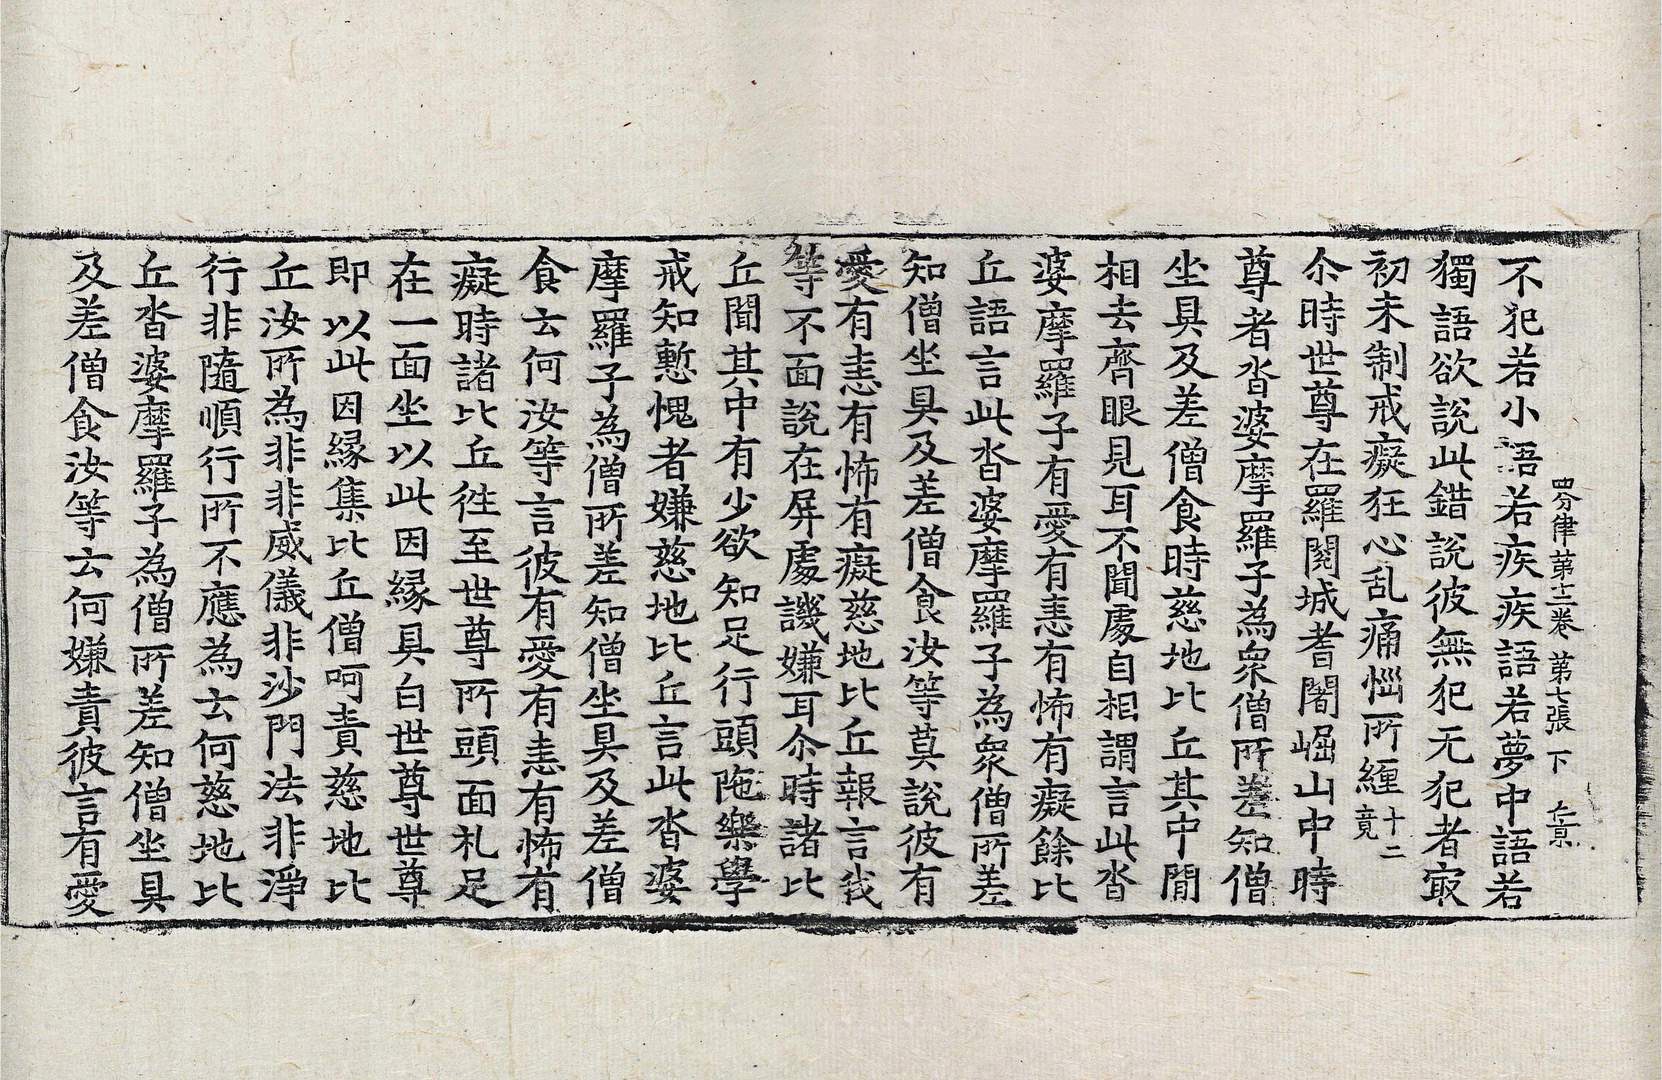 四分律第十二卷 第七張 下
不犯若小語若疾疾語若夢中語若
獨語欲說此錯說彼無犯无犯者㝡
初未制戒癡狂心乱痛惱所纏十二竟
尒時世尊在羅閱城耆闍崛山中時
尊者沓婆摩羅子為衆僧所差知僧
坐具及差僧食時慈地比丘其中間
相去齊眼見耳不聞處自相謂言此沓
婆摩羅子有愛有恚有怖有癡餘比
丘語言此沓婆摩羅子為衆僧所差
知僧坐具及差僧食汝等莫說彼有
愛有恚有怖有癡慈地比丘報言我
等不面說在屏處譏嫌耳尒時諸比
丘聞其中有少欲知足行頭陁樂學
戒知慙愧者嫌慈地比丘言此沓婆
摩羅子為僧所差知僧坐具及差僧
食云何汝等言彼有愛有恚有怖有
癡時諸比丘徃至世尊所頭面礼足
在一面坐以此因緣具白世尊世尊
即以此因緣集比丘僧呵責慈地比
丘汝所為非非威儀非沙門法非淨
行非隨順行所不應為云何慈地比
丘沓婆摩羅子為僧所差知僧坐具
及差僧食汝等云何嫌責彼言有愛